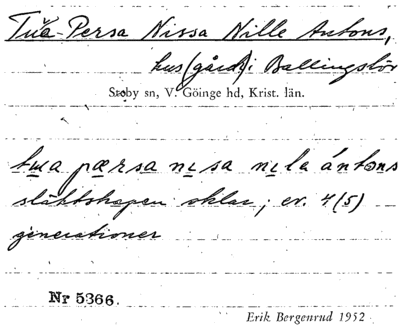 Tua-Persa Nissa Nille Antons,
hus (gård) i Ballingslöv
Stoby sn, V. Göinge hd, Krist. län.
tua pærsa nisa nila ántons
släktskapen oklar; ev. 4(5)
generationer
Nr 5366.
Erik Bergenrud 1952